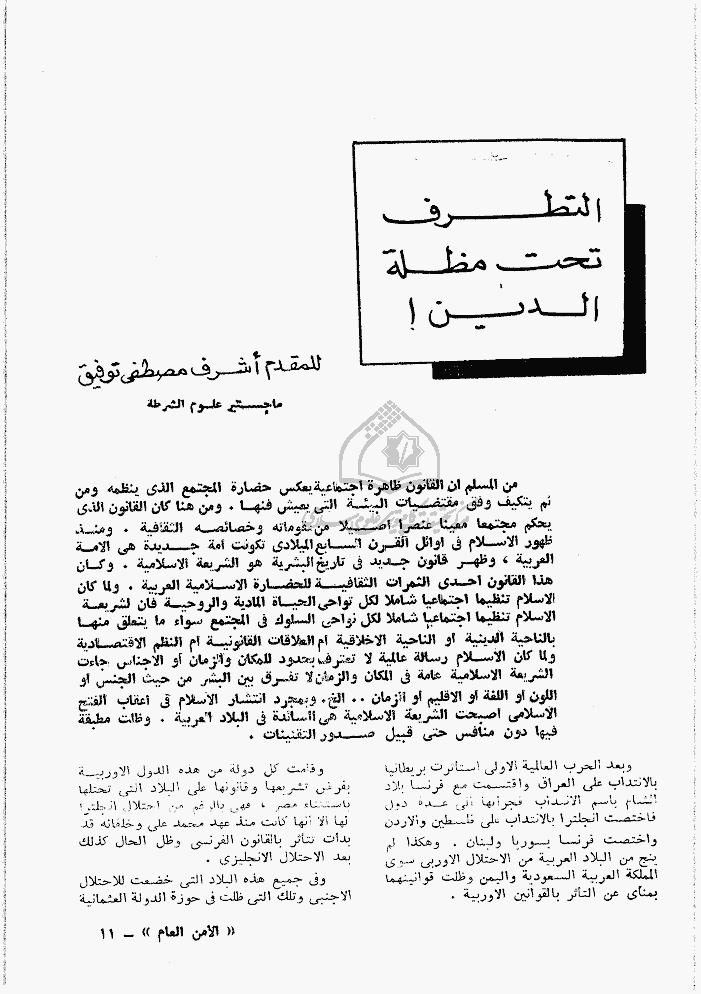 التطرف
تحت مظلة
الدين !
للمقدم أشرف مصطفى توفيق
ماجستير علوم الشرطة
من المسلم ان القانون ظاهرة اجتماعية يعكس حضارة المجتمع الذى ينظمه ومن
ثم يتكيف وفق مقتضيات البيئة التى يعيش فنها . ومن هنا كان القانون الذى
يحكم مجتمعا معينا عنصرا اصيلا من مقوماته وخصائصه الثقافية . ومنذ
ظهور الاسلام فى اوائل القرن السابع الميلادى تكونت امة جديدة هى الامة
العربية ، وظهر قانون جديد فى تاريخ البشرية هو الشريعة الاسلامية . وكان
هذا القانون احدى الثمرات الثقافية للحضارة الاسلامية العربية . ولما كان
الاسلام تنظيما اجتماعيا شاملا لكل نواحى الحياة المادية والروحية فان لشريعة
الاسلام تنظيما اجتماعيا شاملا لكل نواحى السلوك فى المجتمع سواء ما يتعلق منها
بالناحية الدينية او الناحية الاخلاقية ام العلاقات القانونية ام النظم الاقتصادية
ولما كان الاسلام رسالة عالمية لا تعترف بحدود للمكان والزمان أو الاجناس جاءت
الشريعة الاسلامية عامة فى المكان والزمان لا تفرق بين البشر من حيث الجنس او
اللون او اللغة او الاقليم او الزمان .. الخ. وبمجرد انتشار الاسلام فى أعقاب الفتح
الاسلامى اصبحت الشريعة الاسلامية هى السائدة فى البلاد العربية . وظلت مطبقة
فيها دون منافس حتى قبيل صدور التقنينات .
وبعد الحرب العالمية الاولى استأثرت بريطانيا
بالانتداب على العراق واقتسمت مع فرنسا بلاد
الشام باسم الانتداب فجزأتها الى عدة دول
فاختصت انجلترا بالانتداب على فلسطين والاردن
واختصت فرنسا بسوريا ولبنان . وهكذا لم
ينج من البلاد العربية من الاحتلال الاوربى سوى
المملكة العربية السعودية واليمن وظلت قوانينهما
بمنأى عن التأثر بالقوانين الاوربية .
وقامت كل دولة من هذه الدول الاوربية
بفرض تشريعها وقانونها على البلاد التى تحتلها
باستثناء مصر ، فهى بالرغم من احتلال انجلترا
لها الا أنها كانت منذ عهد محمد على وخلفائه قد
بدأت تتأثر بالقانون الفرنسى وظل الحال كذلك
بعد الاحتلال الانجليزى .
وفى جميع هذه البلاد التى خضعت للاحتلال
الاجنبى وتلك التى ظلت فى حوزة الدولة العثمانية
« الأمن العام » – ١١